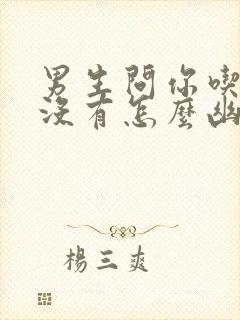 男生問你喫
沒有怎麼幽
楊三爽